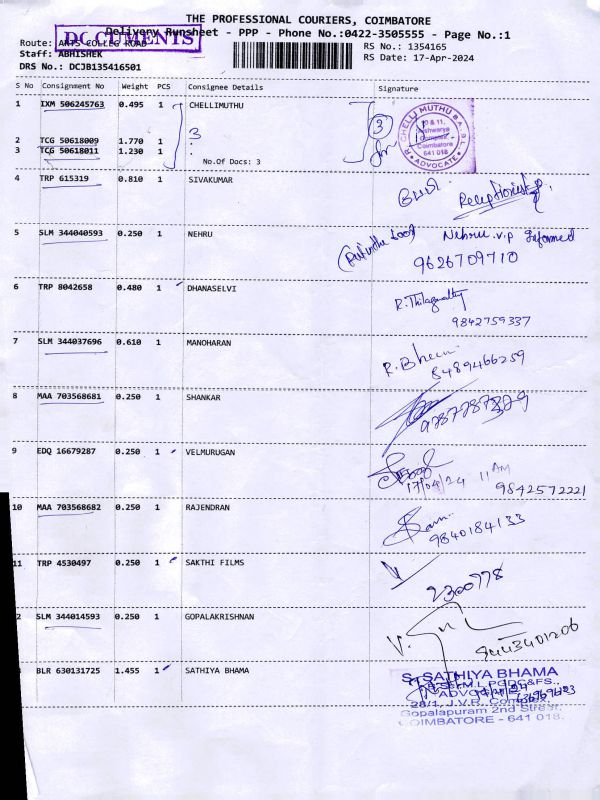 THE PROFESSIONAL COURIERS, COIMBATORE
Delivery Runsheet - PPP - Phone No.:0422-3505555 - Page No.:1
DOCUMENTS
Route: ARTS COLLEG ROAD
Staff: ABHISHEK
DRS No.: DCJB135416501
RS No.: 1354165
RS Date: 17-Apr-2024
S No Consignment No Weight PCS Consignee Details Signature
1 IXM 506245763 0.495 1 CHELLIMUTHU
3
2 TCG 50618009 1.770 1 :
3 TCG 50618011 1.230 1 :
No.Of Docs: 3
3
CHELLI MUTHU B.A. B.L.
Coimbatore
641 018
ADVOCATE
4 TRP 615319 0.810 1 SIVAKUMAR
Receptionist
5 SLM 344040593 0.250 1 NEHRU
Nehru v.p Informed
9626709710
6 TRP 8042658 0.480 1 DHANASELVI
R. Thilagavathy
9842759337
7 SLM 344037696 0.610 1 MANOHARAN
8489466259
8 MAA 703568681 0.250 1 SHANKAR
9 EDQ 16679287 0.250 1 VELMURUGAN
17/04/24 11 AM
9842572221
10 MAA 703568682 0.250 1 RAJENDRAN
9840184133
11 TRP 4530497 0.250 1 SAKTHI FILMS
2300778
2 SLM 344014593 0.250 1 GOPALAKRISHNAN
9443401206
BLR 630131725 1.455 1 SATHIYA BHAMA
S. SATHIYA BHAMA
ADVOCATE
28/1, J.V.R. Complex,
Gopalapuram 2nd Street,
COIMBATORE - 641 018.